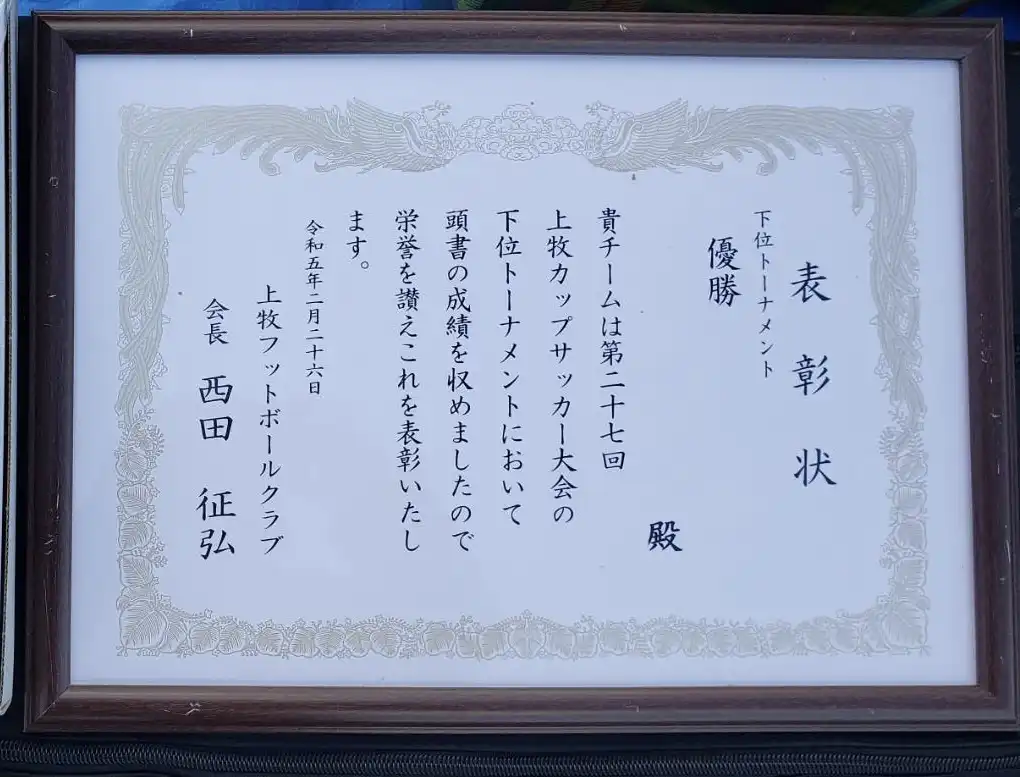 表彰状
下位トーナメント
優勝
殿
貴チームは第二十七回
上牧カップサッカー大会の
下位トーナメントにおいて
頭書の成績を収めましたので
栄誉を讃えこれを表彰いたし
ます。
令和五年二月二十六日
上牧フットボールクラブ
会長 西田 征弘